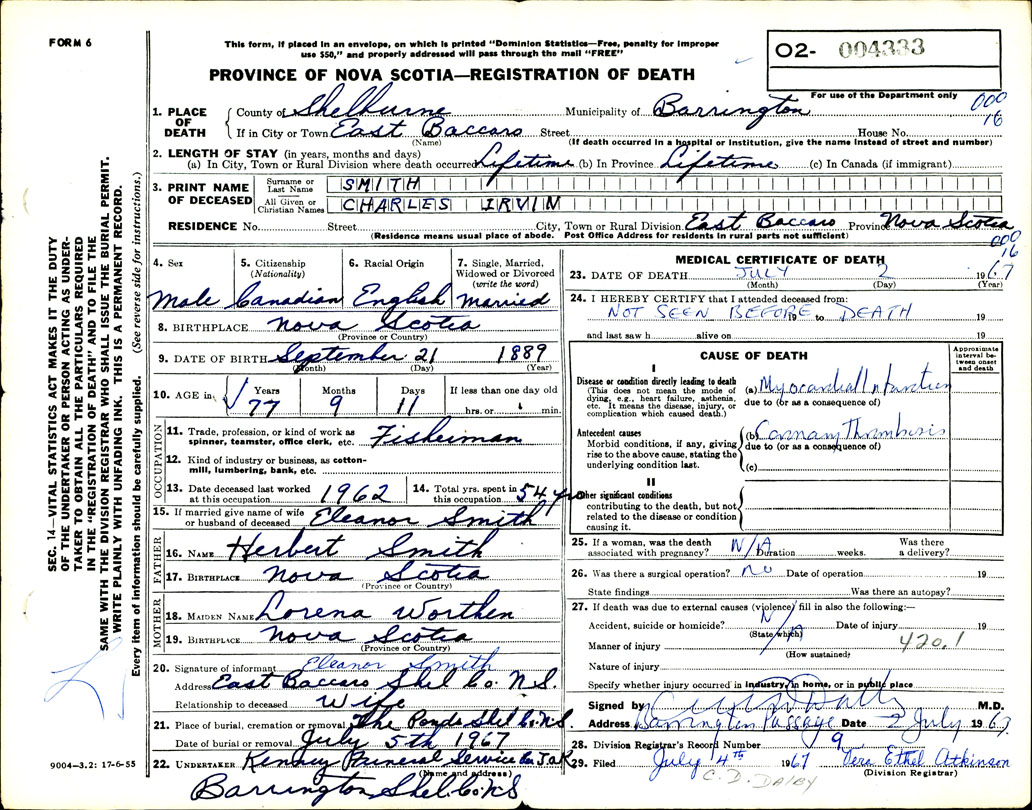 FORM 6
This form, if placed in an envelope, on which is printed "Dominion Statistics—Free, penalty for improper
use $50," and properly addressed will pass through the mail "FREE"
O2- 004333
For use of the Department only
PROVINCE OF NOVA SCOTIA—REGISTRATION OF DEATH
000
16
1. PLACE OF DEATH
County of Shelburne Municipality of Barrington
If in City or Town East Baccaro Street House No.
(Name) (If death occurred in a hospital or institution, give the name instead of street and number)
2. LENGTH OF STAY (in years, months and days)
(a) In City, Town or Rural Division where death occurred Lifetime (b) In Province Lifetime (c) In Canada (if immigrant)
3. PRINT NAME OF DECEASED
Surname or Last Name SMITH
All Given or Christian Names CHARLES IRVIN
RESIDENCE No. Street City, Town or Rural Division East Baccaro Province Nova Scotia
(Residence means usual place of abode. Post Office Address for residents in rural parts not sufficient)
000
16
4. Sex
Male
5. Citizenship
(Nationality)
Canadian
6. Racial Origin
English
7. Single, Married,
Widowed or Divorced
(write the word)
Married
8. BIRTHPLACE Nova Scotia
(Province or Country)
9. DATE OF BIRTH September 21 1889
(Month) (Day) (Year)
10. AGE in
Years Months Days If less than one day old
77 9 11 hrs. or min.
OCCUPATION
11. Trade, profession, or kind of work as
spinner, teamster, office clerk, etc. Fisherman
12. Kind of industry or business, as cotton-
mill, lumbering, bank, etc.
13. Date deceased last worked
at this occupation 1962
14. Total yrs. spent in
this occupation 54 yrs
15. If married give name of wife
or husband of deceased Eleanor Smith
FATHER
16. NAME Herbert Smith
17. BIRTHPLACE Nova Scotia
(Province or Country)
MOTHER
18. MAIDEN NAME Lorena Worthen
19. BIRTHPLACE Nova Scotia
(Province or Country)
20. Signature of informant Eleanor Smith
Address East Baccaro Shel Co. N.S.
Relationship to deceased Wife
21. Place of burial, cremation or removal The Ponds Shel Co. N.S.
Date of burial or removal July 5th 1967
22. UNDERTAKER Kenney Funeral Service
(Name and address)
Barrington Shel. Co. N.S
MEDICAL CERTIFICATE OF DEATH
23. DATE OF DEATH JULY 2 1967
(Month) (Day) (Year)
24. I HEREBY CERTIFY that I attended deceased from:
NOT SEEN BEFORE 19 to DEATH 19
and last saw h alive on 19
CAUSE OF DEATH
Approximate
interval be-
tween onset
and death
I
Disease or condition directly leading to death
(This does not mean the mode of
dying, e.g., heart failure, asthenia,
etc. It means the disease, injury, or
complication which caused death.)
(a) Myocardial Infarction
due to (or as a consequence of)
Antecedent causes
Morbid conditions, if any, giving
rise to the above cause, stating the
underlying condition last.
(b) Coronary Thrombosis
due to (or as a consequence of)
(c)
II
Other significant conditions
contributing to the death, but not
related to the disease or condition
causing it.
25. If a woman, was the death
associated with pregnancy? N/A Duration weeks. Was there
a delivery?
26. Was there a surgical operation? no Date of operation 19
State findings Was there an autopsy?
27. If death was due to external causes (violence) fill in also the following:—
Accident, suicide or homicide? N/A Date of injury 19
(State which)
Manner of injury 420.1
(How sustained)
Nature of injury
Specify whether injury occurred in industry, in home, or in public place
Signed by M.D.
Address Barrington Passage Date 2 July 1967
28. Division Registrar's Record Number 9
29. Filed July 4th 1967 Vera Ethel Atkinson
(Division Registrar)
C. D. DALBY
SEC. 14—VITAL STATISTICS ACT MAKES IT THE DUTY
OF THE UNDERTAKER OR PERSON ACTING AS UNDER-
TAKER TO OBTAIN ALL THE PARTICULARS REQUIRED
IN THE "REGISTRATION OF DEATH" AND TO FILE THE
SAME WITH THE DIVISION REGISTRAR WHO SHALL ISSUE THE BURIAL PERMIT.
WRITE PLAINLY WITH UNFADING INK. THIS IS A PERMANENT RECORD.
Every item of information should be carefully supplied. (See reverse side for instructions.)
9004—3.2: 17-6-55